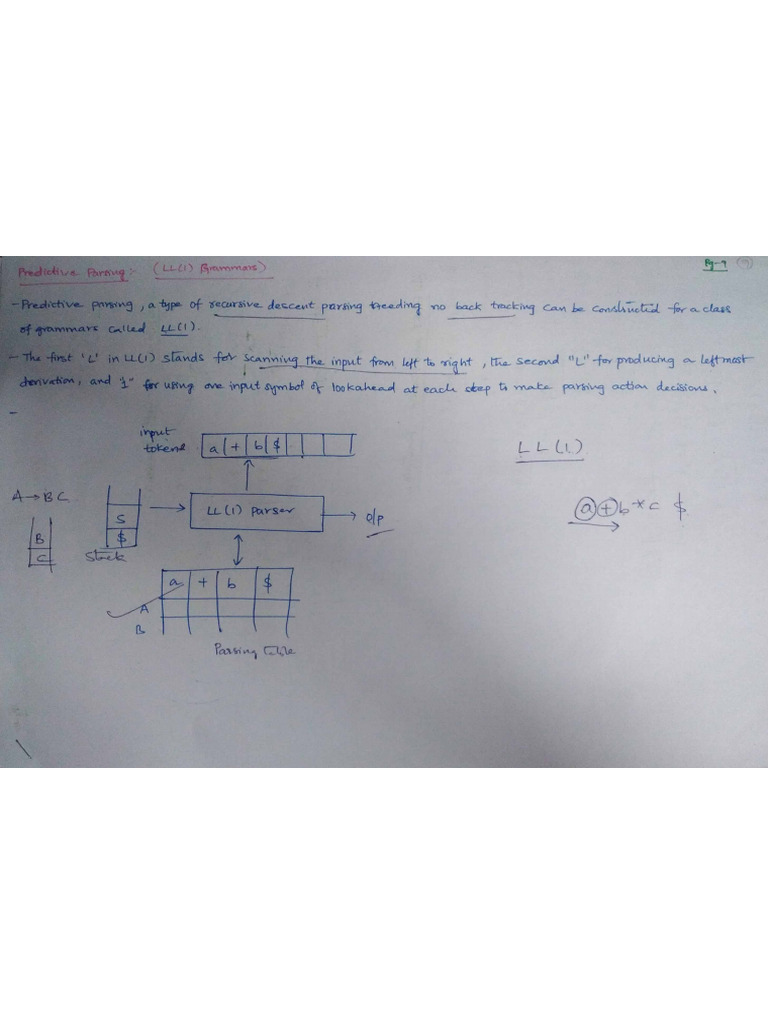 Predictive Parsing :- (LL(1) Grammars)
Pg-9 9
- Predictive parsing, a type of recursive descent parsing needing no back tracking can be constructed for a class
of grammars called LL(1).
- The first 'L' in LL(1) stands for scanning the input from left to right, the second "L" for producing a left most
derivation, and "1" for using one input symbol of lookahead at each step to make parsing action decisions.
-
input
tokens
a + b $
LL(1)
A → B C
B
C
S
$
Stack
LL(1) parser
o/p
a + b * c $
a + b $
A
B
Parsing table